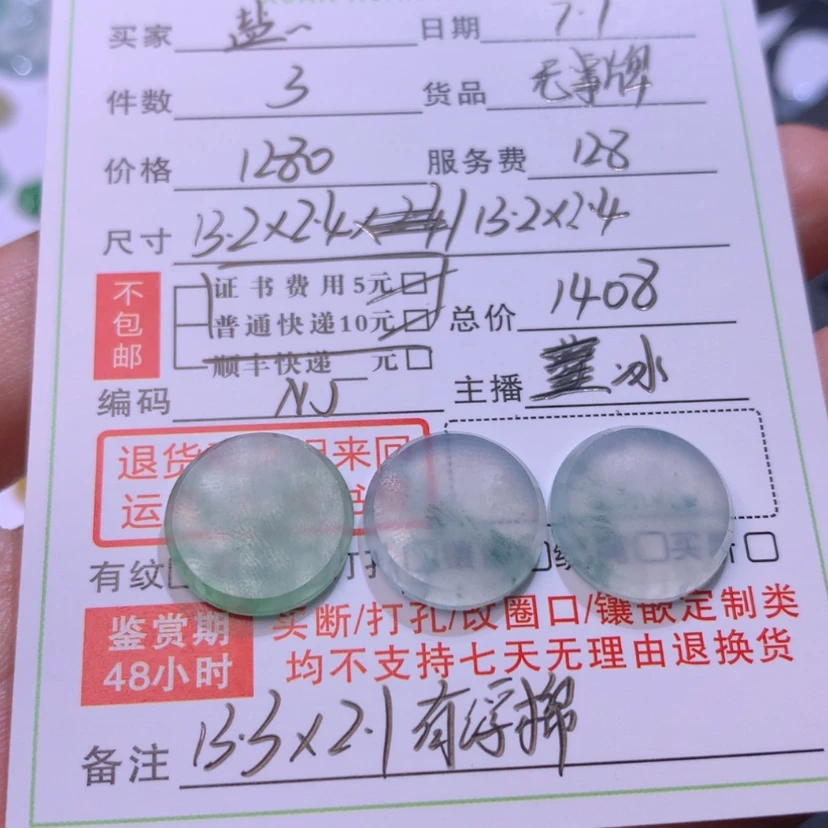 买家 盐一 日期 7.1
件数 3 货品 无事牌
价格 1280 服务费 128
尺寸 13.2×2.4× / 13.2×2.4
不包邮
证书费用5元
普通快递10元 总价 1408
顺丰快递 元
编码 NJ 主播 冰
退货 来回
运
有纹 打
鉴赏期 买断/打孔/改圈口/镶嵌定制类
48小时 均不支持七天无理由退换货
备注 13.3×2.1 有浮棉